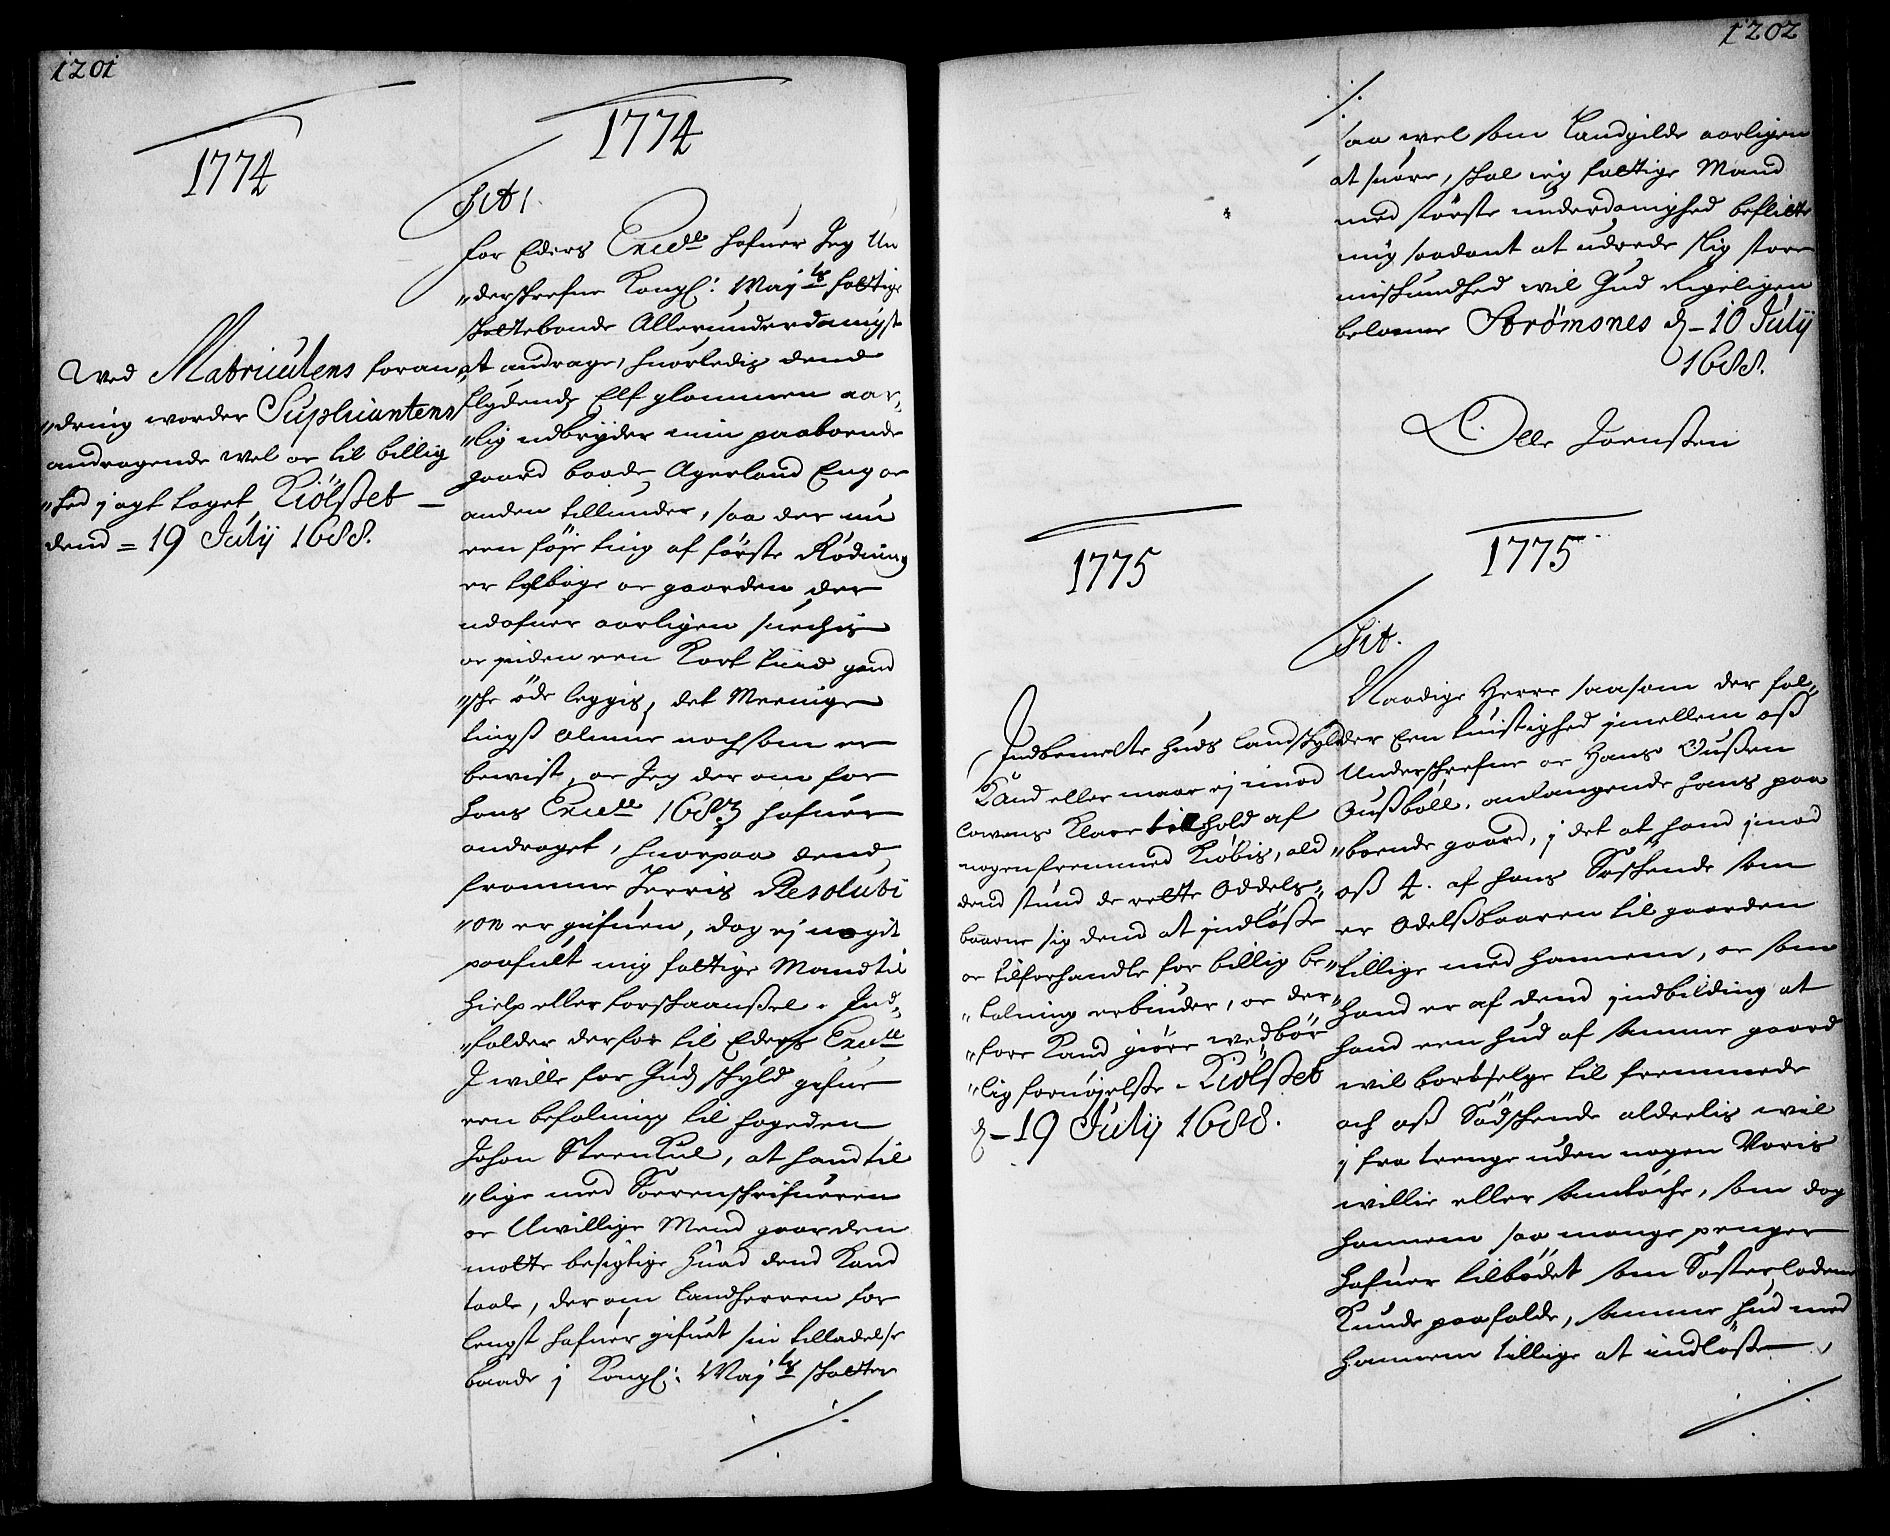 1201
1774
Wed Matriculens foran
„dring worder Supliciantens
andragende wel oc til billig
„hed j agt taget Kiölsset
dend = 19 Julij 1688.
1774
Tit.
for Eders Excell hafuer Jeg Un
„derschrefne Kongl: Mayts fattige
schattebonde Allerunderdanigst
at andrage, huorledis dend
flydende Elf glommen aar„
„lig udbryder min paaboende
gaard baade Agerland Eng oc
anden tillunder, saa der nu
een föje ting af förste Rödning
er tilbage oc gaarden der
udofuer aarligen suechis
oc inden een Kort tiid gand
„sche öde leggis, det Meenige
tingß almue nochsom er
bewist, oc Jeg der om for
hans Excell 1683 hafuer
andraget, huorpaa dend
fromme Herris Resoluti
„on er gifuen, dog ej noget
paafult mig fattige Mand til
hielp eller forschaanßel. Ind„
„falder derfor til Eders Excell
J wille for Gudß schyld gifue
een befaling til fogeden
Johan Steenkul, at hand til
„lige med Sorenschrifueren
oc Uwillige Mend gaarden
motte besigtige huad dend Kand
taale, der om Landherren for
lengst hafuer gifuet sin tilladelse
baade j Kongl: Mayts schatter
1202
saa wel som Landgilde aarligen
at suare, schal jeg fattige Mand
med störste underdanighed beflitte
mig saadant at udrede slig store
mischundhed wil Gud Rigeligen
belønne Strømsnes d – 10 Julij
1688.
Olle Joenßen
1775
Indbemelte huds Landschyld
Kand eller maae ej imod
Lowens Klare tilhold af
nogen fremmed Kiöbis, ald
dend stund de rette Oddels„
baarne sig dend at jndlöße
oc tilforhandle for billig be„
„taling erbiuder, oc der„
„fore Kand giöre wedbör
„lig fornöjelße. Kiölßet
d – 19 Julij 1688.
1775
Tit.
Naadige Herre saasom der fal„
der Een tuistighed jmellem oß
Underschrefne oc Hans Oußen
Außböll. anlangende hans paa
„boende gaard, j det at hand jmod
oß 4. af hans Söschende som
er Odelßbaaren til gaarden
tillige med hannem, oc som
hand er af dend jndbilding at
hand een hud af samme gaard
wil bortselge til fremmede
och oß Södschende alderlis wil
j fra trenge uden nogen Voris
willie eller samtöche, som dog
hannem saa mange penger
hafuer tilbödet som Sösterlodene
Kunde paafalde, samme hud med
hannem tillige at indlöße